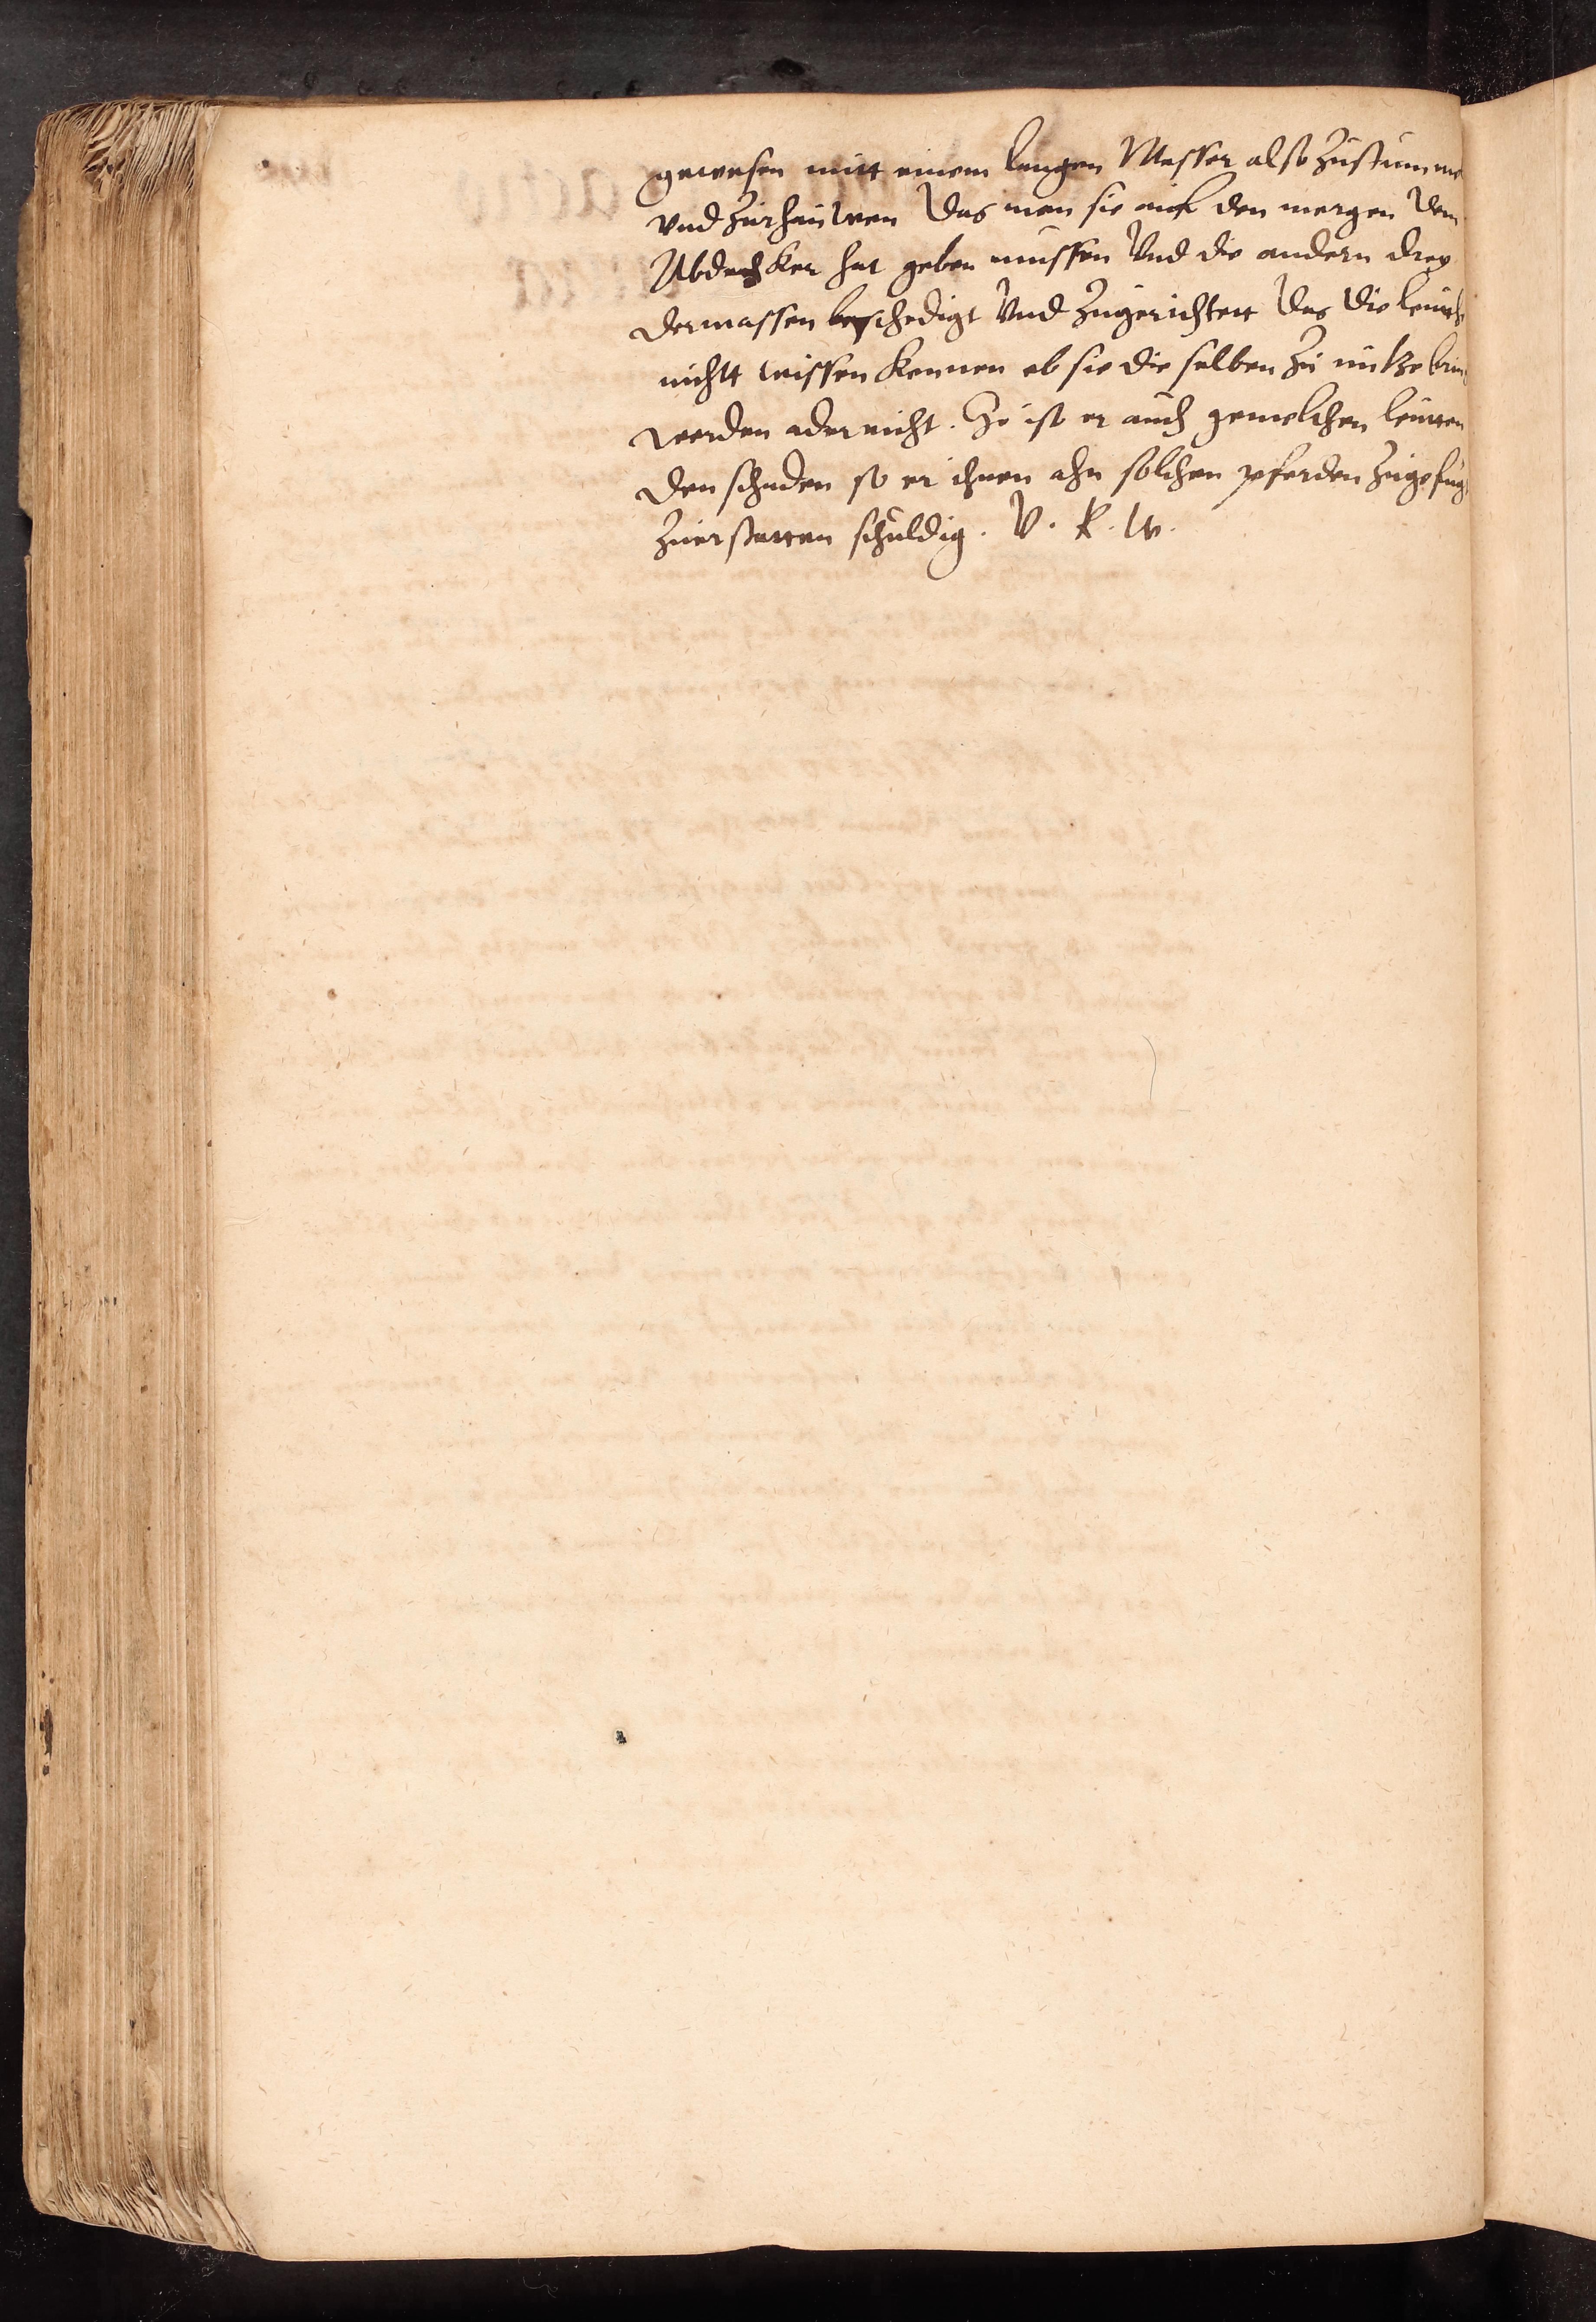 gewesen mitt einem langen Messer also zustumme
vnd zurhauwen Das man sie auf den morgen dem
Abdecker hat geben mussen Vnd die andern drey
dermassen beschedigt Vnd zugerichtett Das die leutth
nichtt wissen konnen ob sie die selben zu nutze brin
werden ader nicht. So ist er auch gemelthen leutten
den schaden so er ihnen ahn solchen pferden zugefug
zuerstatten schuldig. V. R. W.